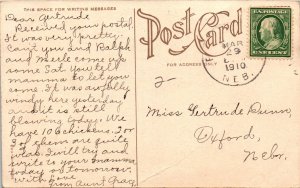 THIS SPACE FOR WRITING MESSAGES
Post Card
FOR ADDRESS ONLY
Dear Gertrude
Received your postal.
It was very pretty.
Can't you and Ralph
and Merle come up
some Sat. You tell
mamma to let you
some. It was awfully
windy here yesterday
and it is still
blowing today. We
have 10 chickens. 2 or
of them are quite
I will try and
write to your mamma
today or tomorrow.
With love
from Aunt Grace
MAR
9
1910
NEB.
U.S. POSTAGE
ONE CENT
2-
Miss Gertrude Dunn,
Oxford,
Nebr.